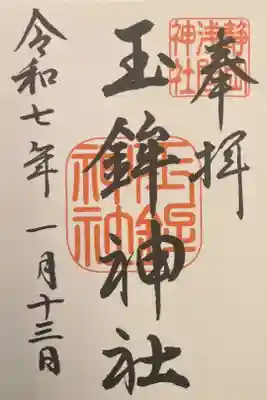 奉拝
静岡
浅間
神社
玉鉾神社
令和七年一月十三日